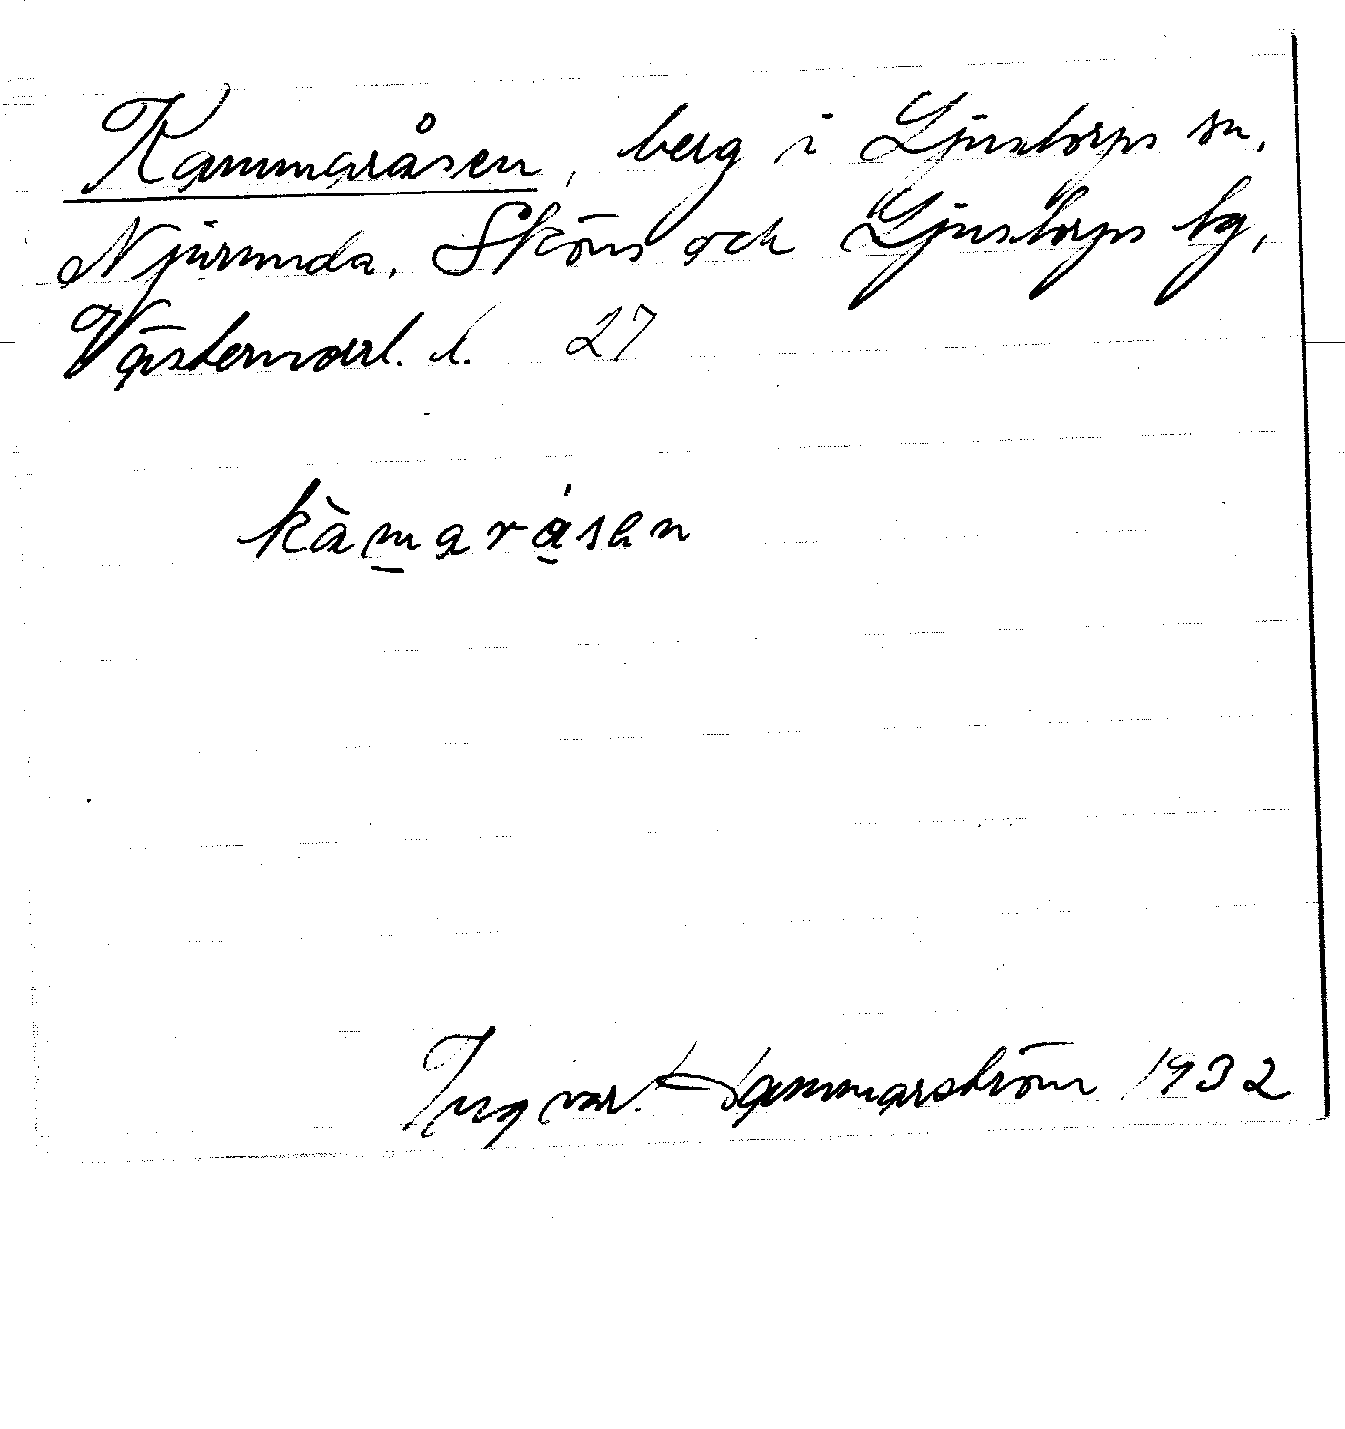 Kammaråsen, berg i Ljustorps sn,
Njurunda, Sköns och Ljustorps tg,
Västernorrl. l. 27
kàmaråsen
Ingvar Hammarström 1932